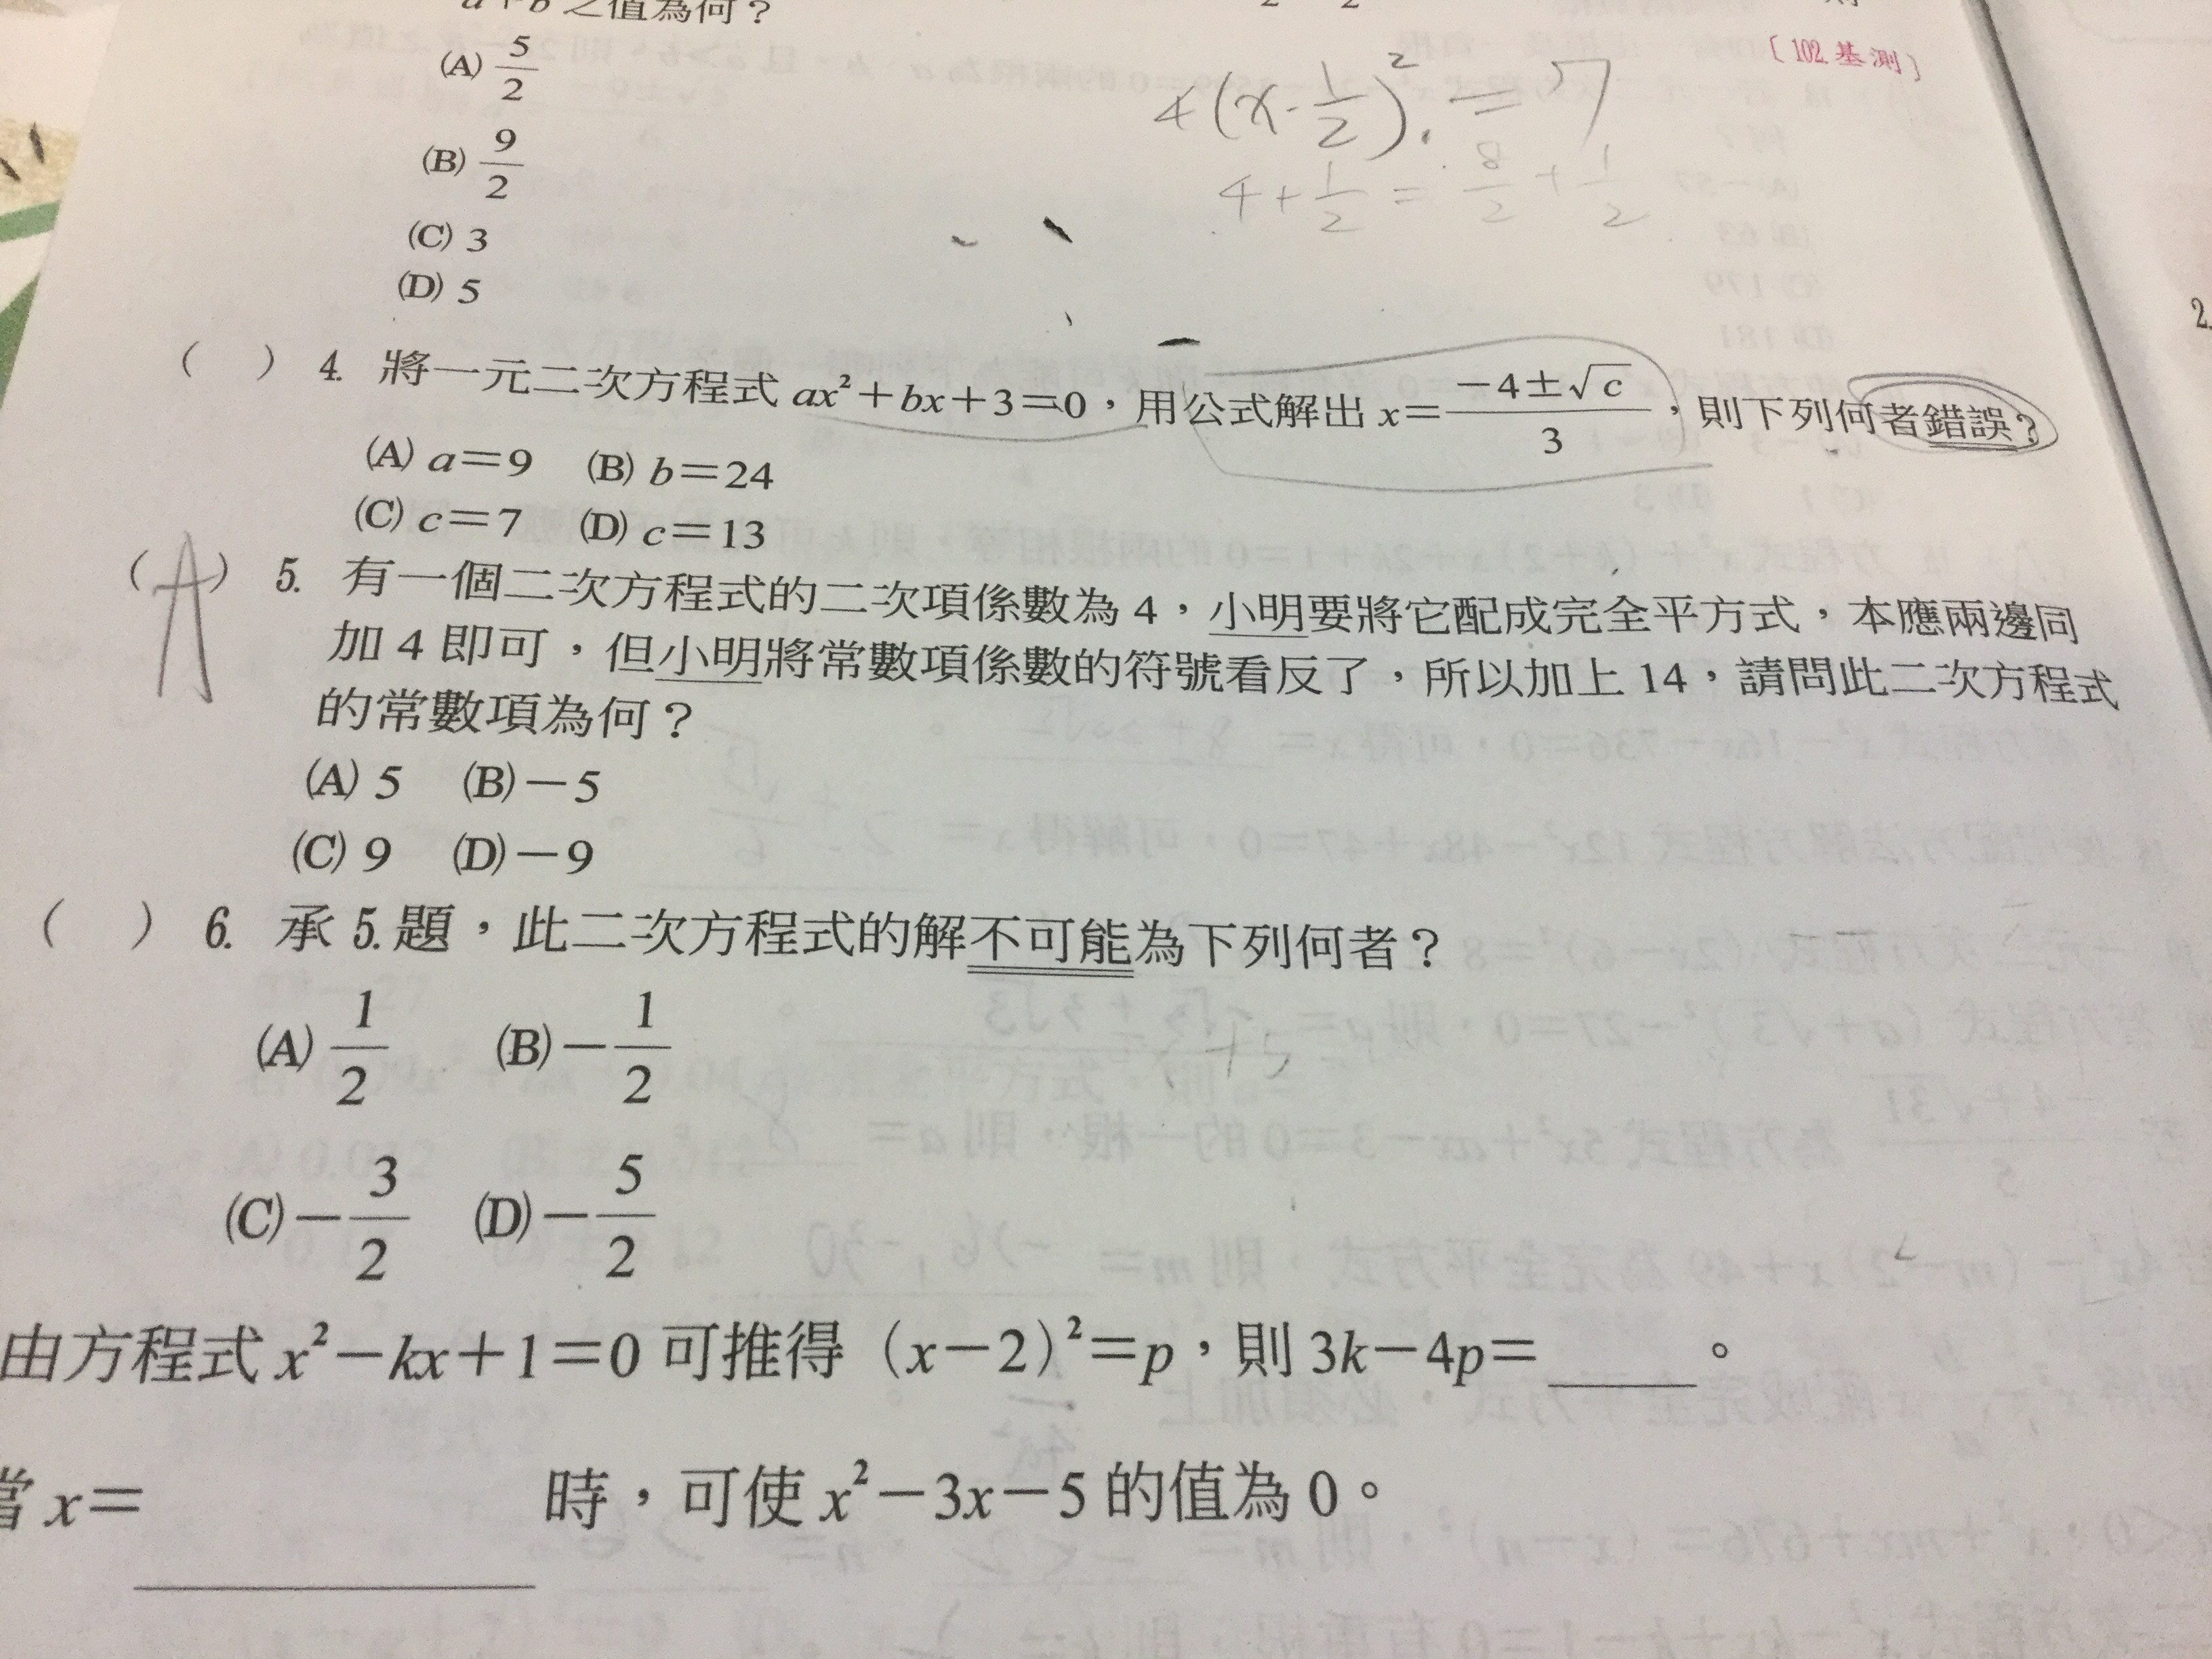 a+b 之值為何？
〔102.基測〕
(A) 5/2
4(x-1/2)²=7
(B) 9/2
4+1/2=8/2+1/2
(C) 3
(D) 5
2.
( ) 4. 將一元二次方程式 ax²+bx+3=0，用公式解出 x=(-4±√c)/3，則下列何者錯誤？
(A) a=9 (B) b=24
(C) c=7 (D) c=13
(A) 5. 有一個二次方程式的二次項係數為 4，小明要將它配成完全平方式，本應兩邊同
加 4 即可，但小明將常數項係數的符號看反了，所以加上 14，請問此二次方程式
的常數項為何？
(A) 5 (B) -5
(C) 9 (D) -9
( ) 6. 承 5. 題，此二次方程式的解不可能為下列何者？
(A) 1/2 (B) -1/2
(C) -3/2 (D) -5/2
由方程式 x²-kx+1=0 可推得（x-2）²=p，則 3k-4p=_____。
當 x=__________ 時，可使 x²-3x-5 的值為 0。